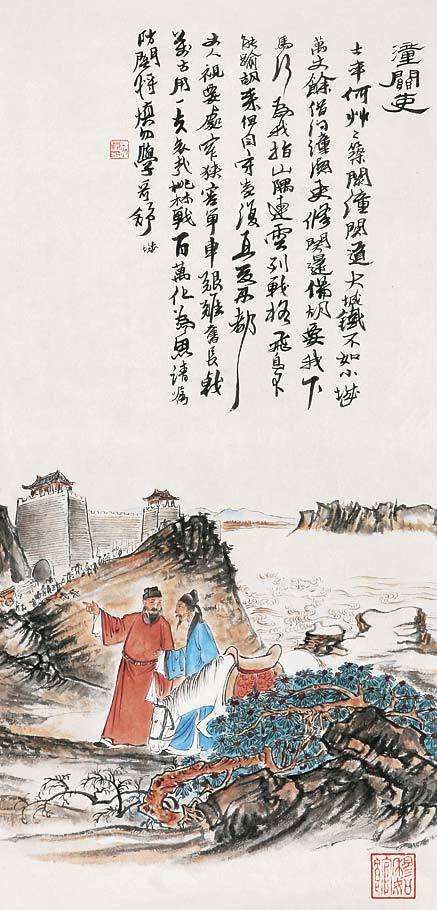 潼關吏
士卒何艸〻築關潼關道大城鐵不如小城
萬丈餘借問潼關吏修關還備胡要我下
馬行為我指山隅連雲列戰格飛鳥不
能踰胡來但自守豈復憂西都
丈人視要處窄狹容單車艱難奮長戟
萬古用一夫哀哉桃林戰百萬化為魚請囑
防關將慎勿學哥舒